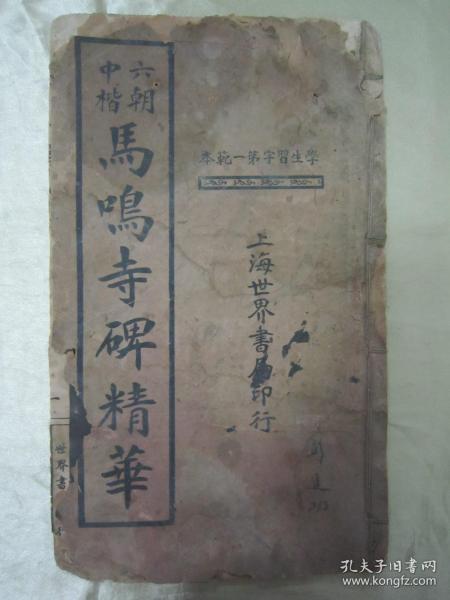 六朝
中楷
馬鳴寺碑精華
學生習字第一範本
上海世界書局印行
世界書
孔夫子旧书网
www.kongfz.com